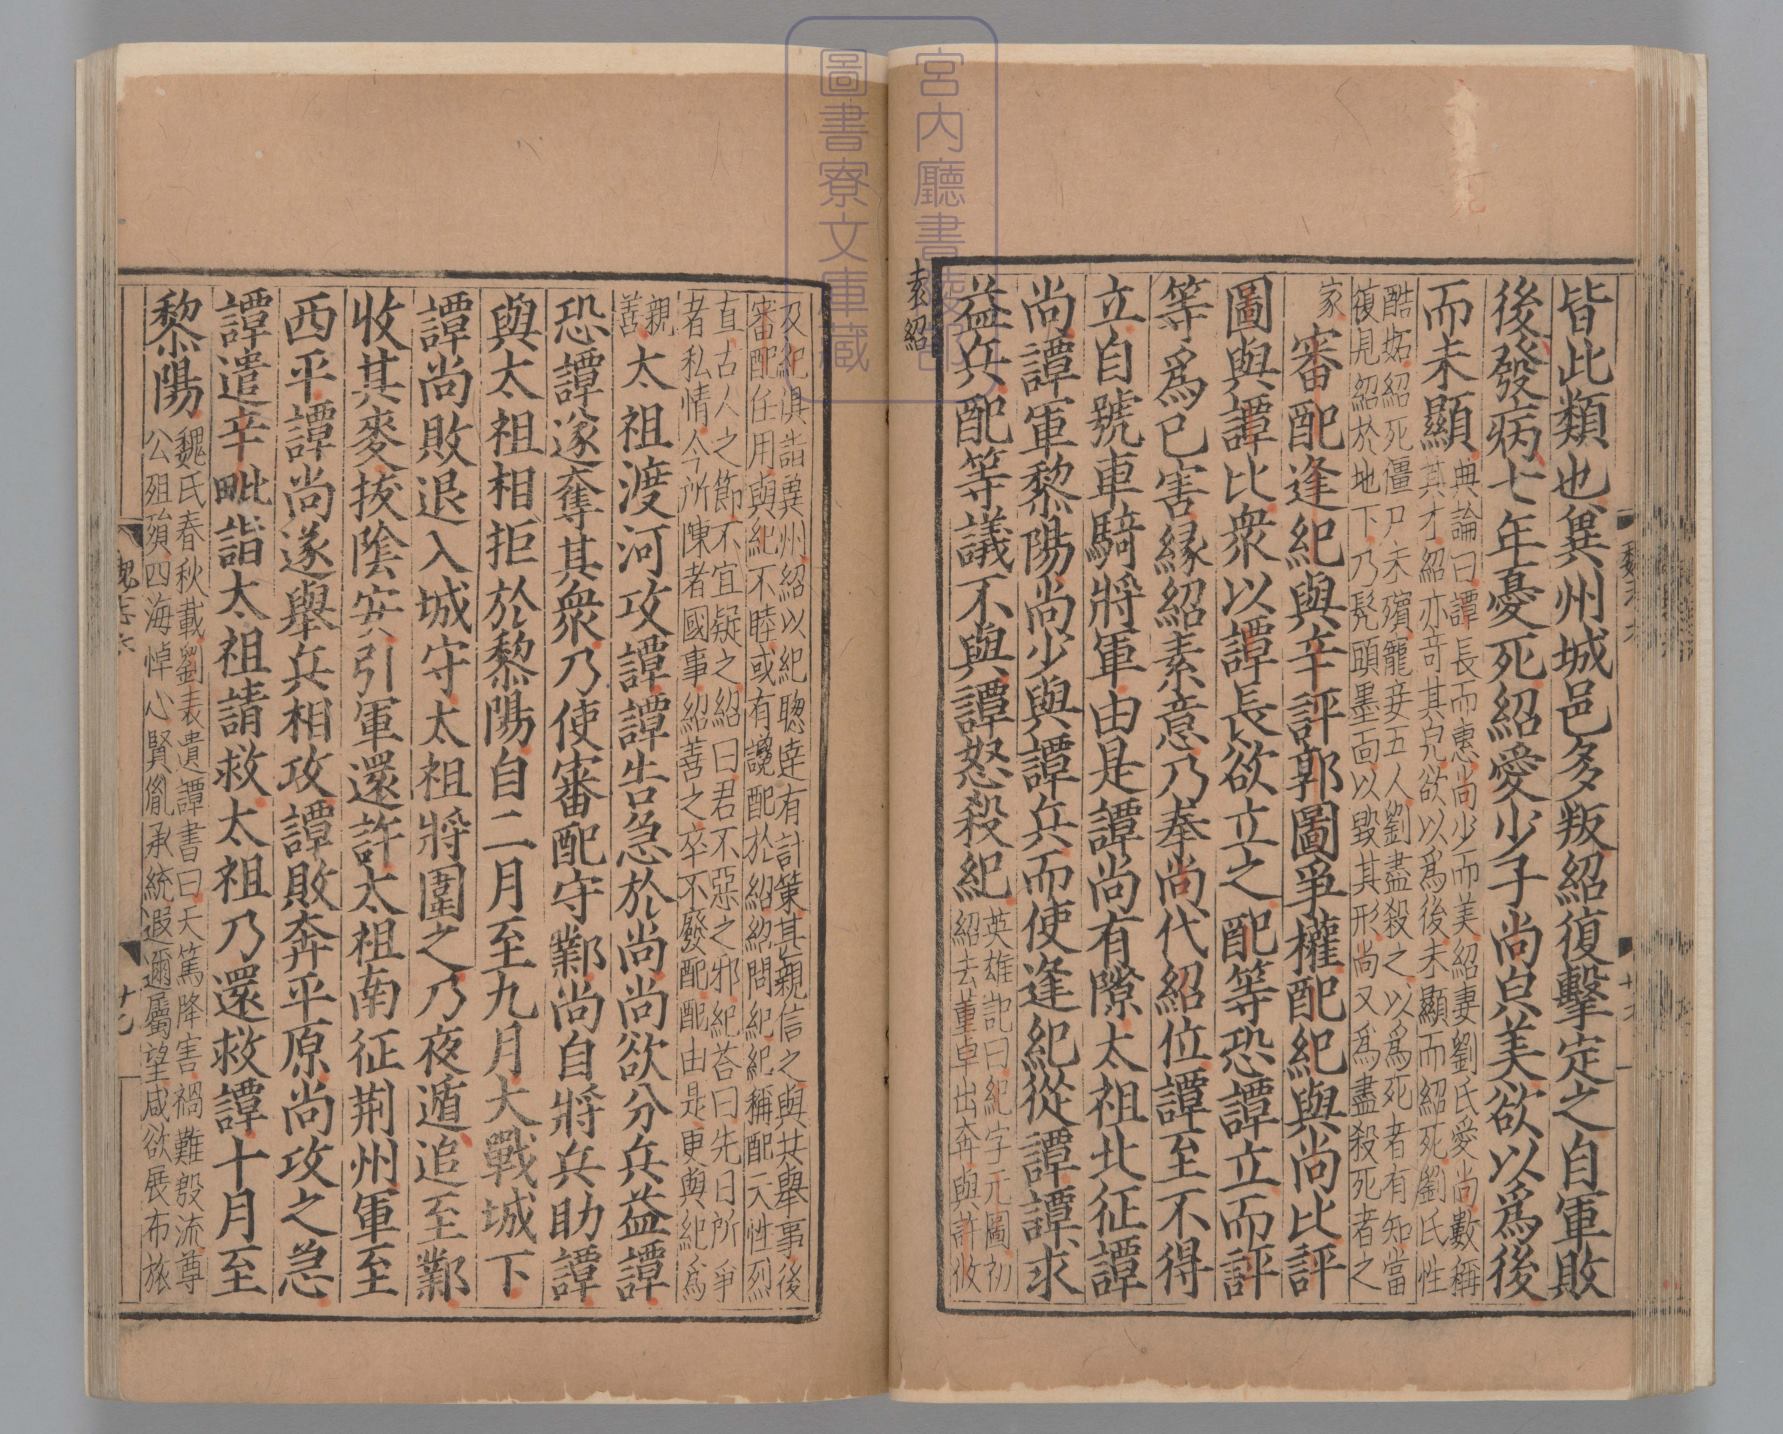 皆此類也冀州城邑多叛紹復擊定之自軍敗
後發病七年憂死紹愛少子尚皃美欲以爲後
而未顯
典論曰譚長而惠尚少而美紹妻劉氏愛尚數稱
其才紹亦竒其皃欲以爲後未顯而紹死劉氏性
酷妬紹死僵尸未殯寵妾五人劉盡殺之以爲死者有知當
復見紹於地下乃髠頭墨面以毀其形尚又爲盡殺死者之
家
審配逢紀與辛評郭圖爭權配紀與尚比評
圖與譚比衆以譚長欲立之配等恐譚立而評
等爲已害緣紹素意乃奉尚代紹位譚至不得
立自號車騎將軍由是譚尚有隙太祖北征譚
尚譚軍黎陽尚少與譚兵而使逢紀從譚譚求
益兵配等議不與譚怒殺紀
英雄記曰紀字元圖初
紹去董卓出奔與許攸
袁紹
及紀俱詣兾州紹以紀聦達有計策甚親信之與共舉事後
審配任用與紀不睦或有讒配於紹紹問紀紀稱配天性烈
直古人之節不宜疑之紹曰君不惡之邪紀荅曰先日所爭
者私情今所陳者國事紹善之卒不廢配配由是更與紀爲
親
善
太祖渡河攻譚譚告急於尚尚欲分兵益譚
恐譚遂奪其衆乃使審配守鄴尚自將兵助譚
與太祖相拒於黎陽自二月至九月大戰城下
譚尚敗退入城守太祖將圍之乃夜遁追至鄴
收其麥拔陰安引軍還許太祖南征荆州軍至
西平譚尚遂舉兵相攻譚敗奔平原尚攻之急
譚遣辛毗詣太祖請救太祖乃還救譚十月至
黎陽
魏氏春秋載劉表遺譚書曰天篤降害禍難殷流尊
公殂殞四海悼心賢胤承統遐邇屬望咸欲展布旅
魏志六
廿九
宮内廳書陵部
圖書寮文庫藏